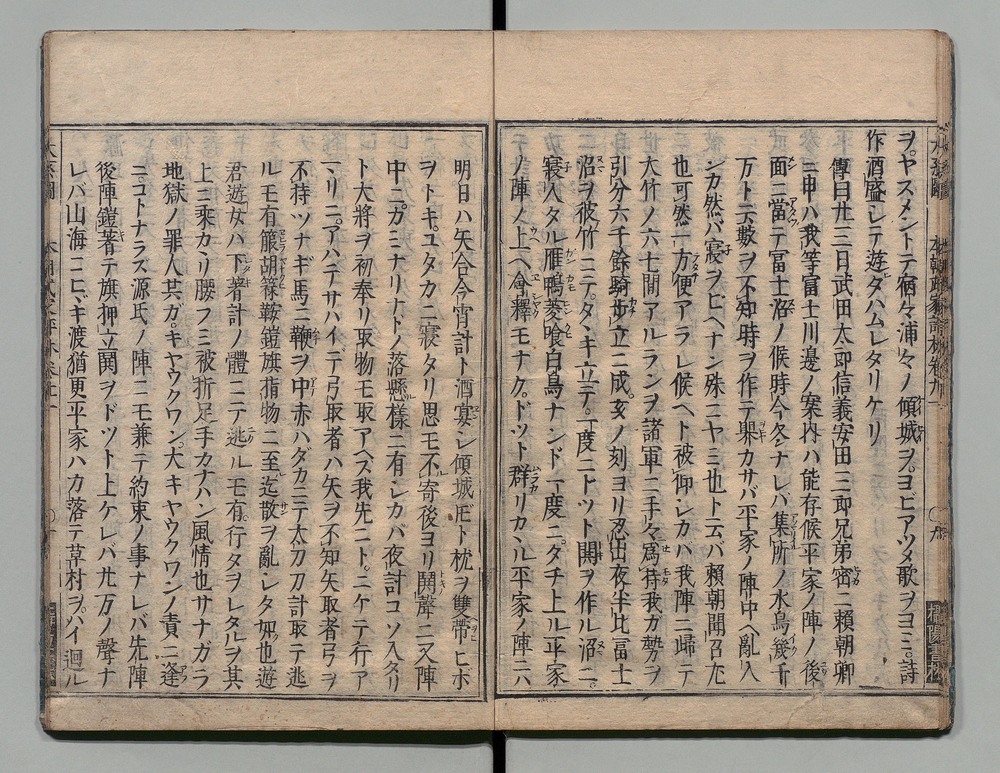 ヲヤスメントテ宿々浦々ノ傾城ヲヨビアツメ歌ヲヨミ詩
作酒盛シテ遊ビタハムレタリケリ
傳曰廿三日武田太郎信義安田三郎兄弟密ニ頼朝卿
ニ申ハ我等冨士川邊ノ案内ハ能存候平家ノ陣ノ後
面ニ當テ冨士沼ノ候時今冬ナレバ集所ノ水鳥幾千
万ト云數ヲ不知時ヲ作テ擧カサバ平家ノ陣中ヘ亂入
シカ然バ寝ヲビヘナン殊ニヤミ也ト云バ頼朝聞召尤
也可然一方便アラレ候ヘト被仰シカハ我陣ニ歸テ
大竹ノ六七間アルランヲ諸軍ニ手々爲持我ガ勢ヲ
引分六千餘騎歩立ニ成亥ノ刻ヨリ忍出夜半比冨士
沼ヲ彼竹ニテタヽキ立テ一度ニドット鬨ヲ作ル沼ニ
寝入タル雁鴨菱喰白鳥ナンド一度ニタチ上ル平家
ノ陣ノ上ヘ會釋モナクドット群リカヽル平家ノ陣ニハ
明日ハ矢合今宵計ト酒宴シ傾城𪜈ト枕ヲ雙帶ヒボ
ヲトキユタカニ寝タリ思モ不寄後ヨリ鬨聲ニ又陣
中ニガミナリナドノ落懸様ニ有シカバ夜計コソ入タリ
ト大將ヲ初奉リ取物モ取アヘス我先ニトニケテ行ア
マリニアハテサハイテ弓取者ハ矢ヲ不知矢取者弓ヲ
不持ツナギ馬ニ鞭ヲ中赤ハダカニテ太刀刀計取テ逃
ルモ有箙胡籙鞍鎧旗指物ニ至迄散ヲ亂シタ如也遊
君遊女ハ下著計ノ體ニテ逃ルモ有行タヲレタルヲ其
上ニ乘カヽリ腰フミ被折足手カナハン風情也サナガラ
地獄ノ罪人共ガキヤウクワン大キヤウクワンノ責ニ逢
ニコトナラズ源氏ノ陣ニモ兼テ約束ノ事ナレバ先陣
後陣鎧著テ旗押立鬨ヲドット上ケレバ廿万ノ聲ナ
レバ山海ニヒヾキ渡猶更平家ハカ落テ草村ヲハイ廻ル